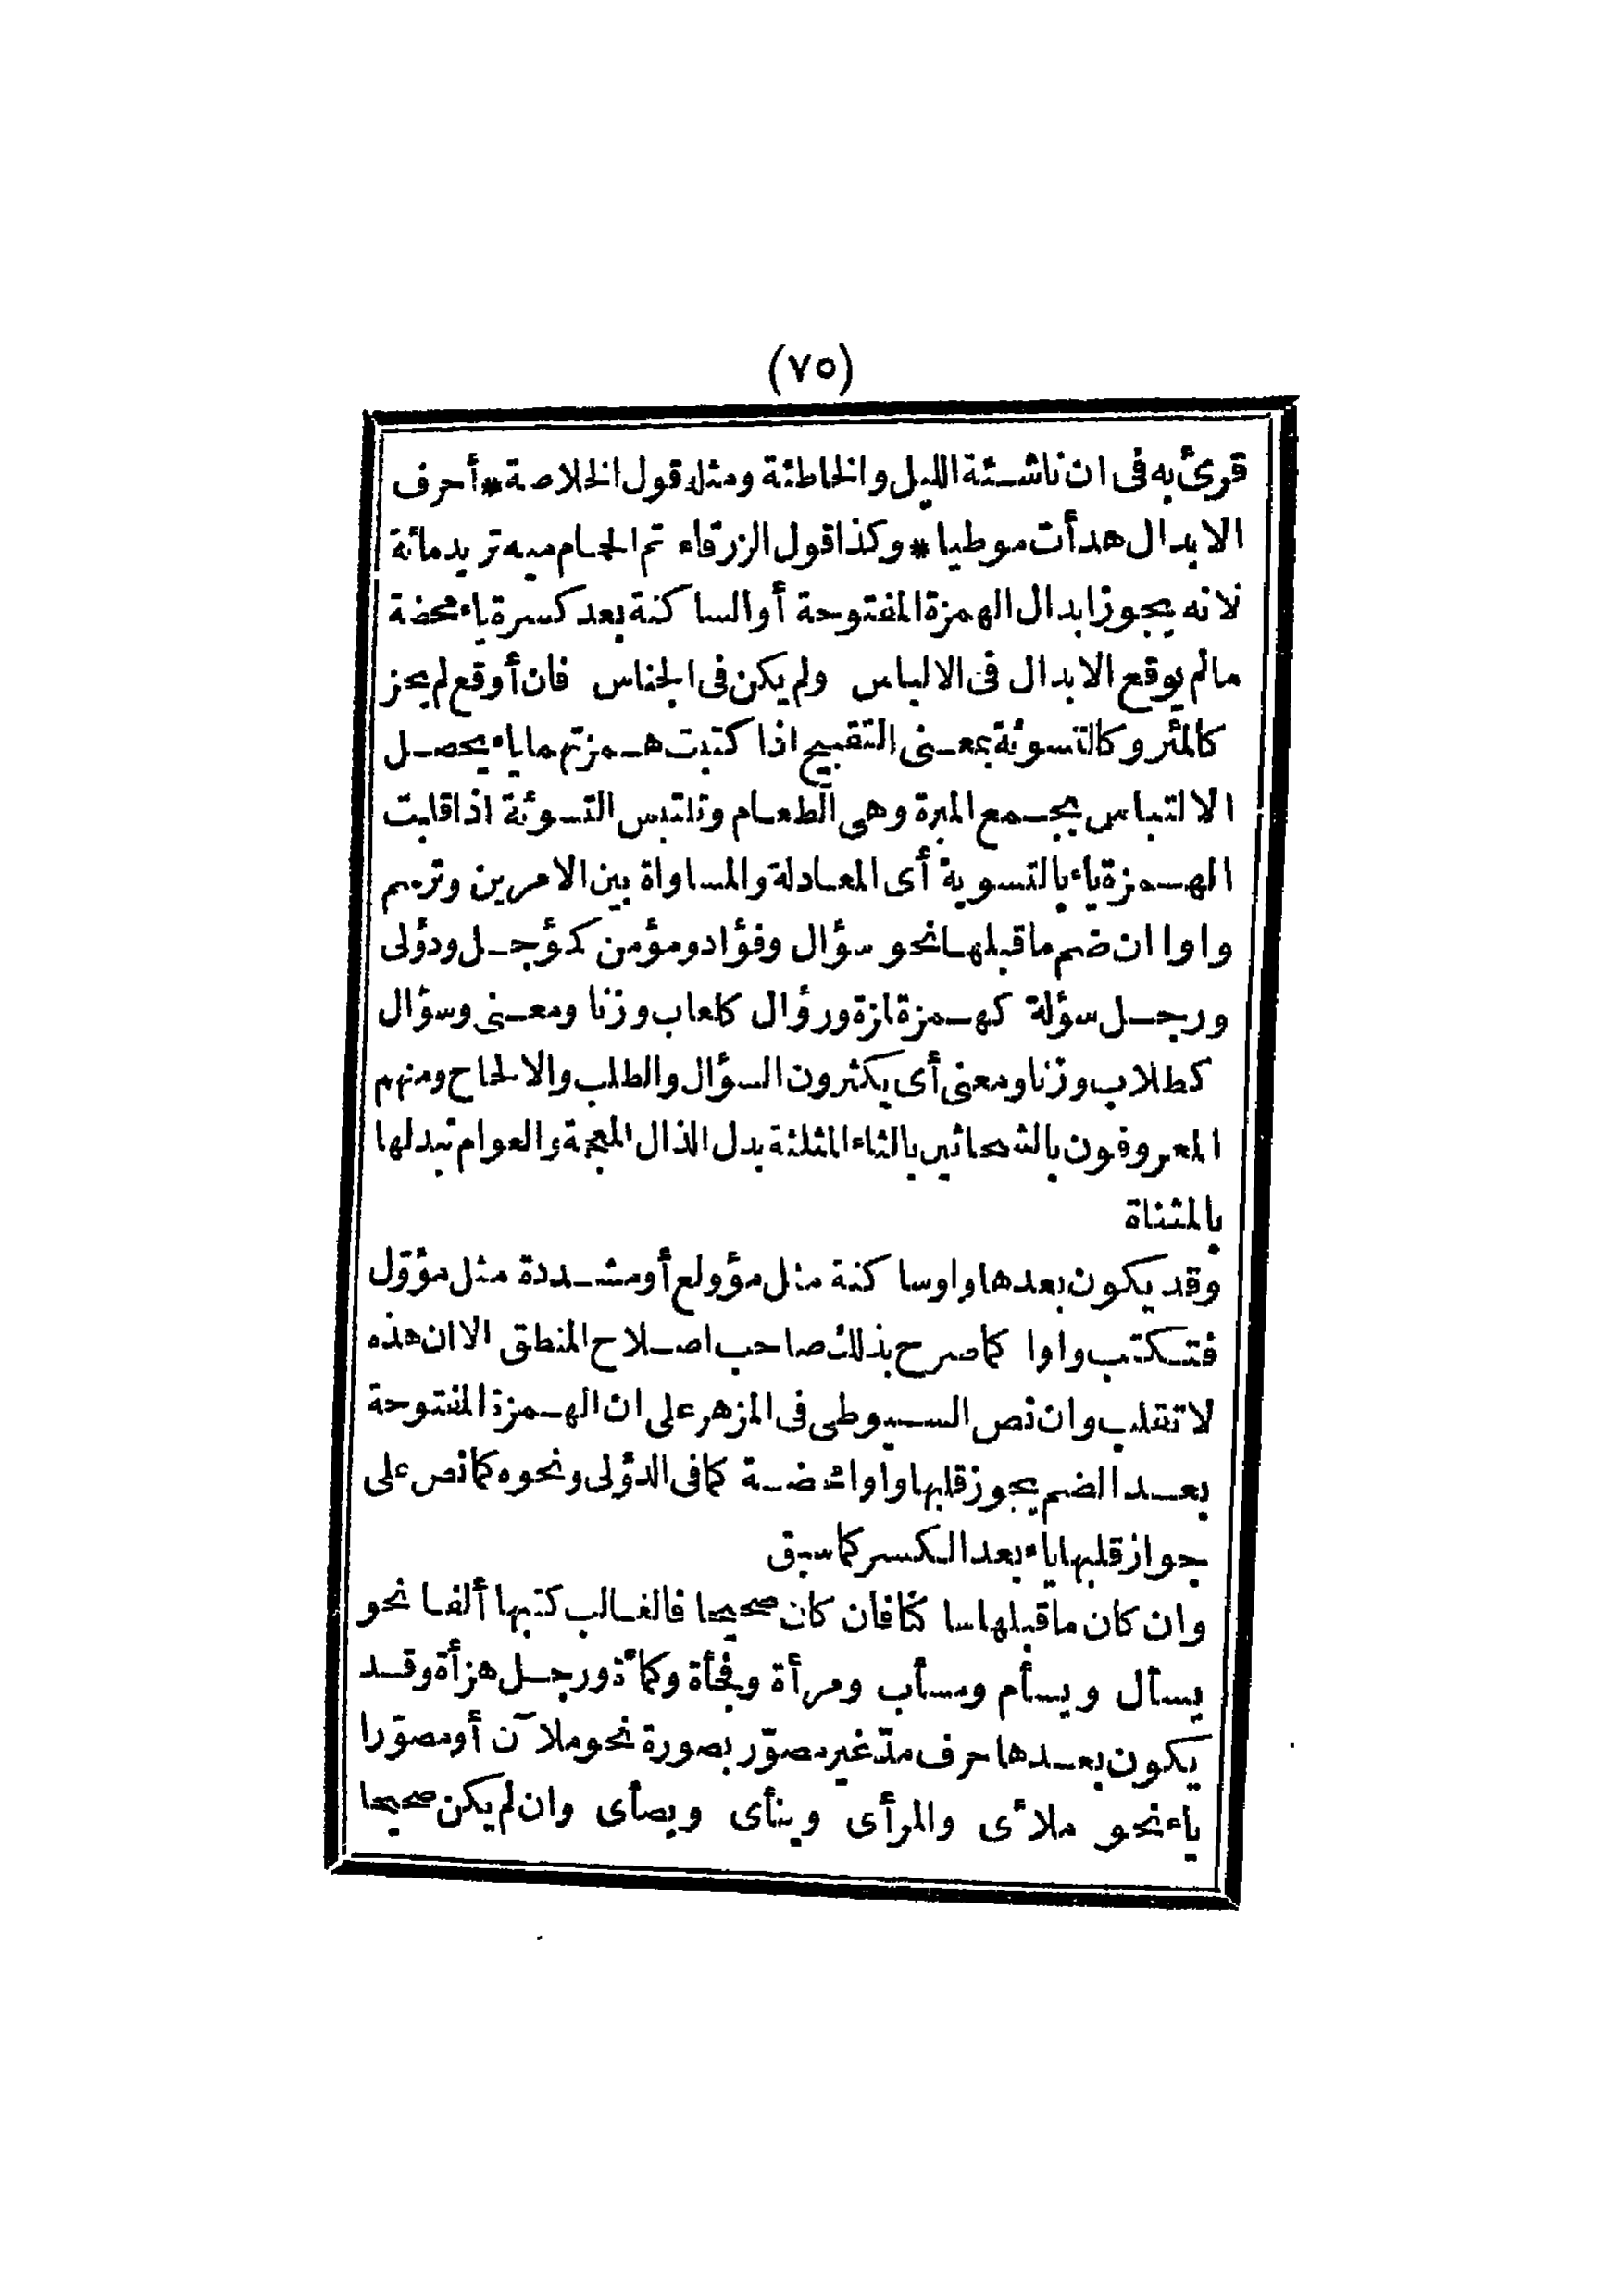 (٧٥)
قرئ به فى ان ناشئة الليل والخاطئة ومثله قول الخلاصة * أحرف
الابدال هدأت موطيا * وكذا قول الزرقاء تم الحمام ميه تريد مائة
لانه يجوز ابدال الهمزة المفتوحة أو الساكنة بعد كسرة ياء محضة
مالم يوقع الابدال فى الالباس ولم يكن فى الجناس فان أوقع لم يجز
كالمئر وكالتسوئة بمعنى التقبيح اذا كتبت همزتهما ياء يحصل
الالتباس بجمع الميرة وهى الطعام وتلتبس التسوئة اذا قلبت
الهمزة ياء بالتسوية أى المعادلة والمساواة بين الامرين وترسم
واوا ان ضم ما قبلها نحو سؤال وفؤاد ومؤمن كؤجل ودؤلى
ورجل سؤلة كهمزة لمزة ورؤال كلعاب وزنا ومعنى وسؤال
كطلاب وزنا ومعنى أى يكثرون السؤال والطلب والالحاح ومنهم
المعروفون بالشحاثين بالثاء المثلثة بدل الذال المعجمة والعوام تبدلها
بالمثناة
وقد يكون بعدها واو ساكنة مثل مؤولع أو مشددة مثل مؤوّل
فتكتب واوا كما صرح بذلك صاحب اصلاح المنطق الا ان هذه
لا تقلب وان نص السيوطى فى المزهر على ان الهمزة المفتوحة
بعد الضم يجوز قلبها واوا محضة كما فى الدؤلى ونحوه كما نص على
جواز قلبها ياء بعد الكسر كما سبق
وان كان ما قبلها ساكنا فان كان صحيحا فالغالب كتبها ألفا نحو
يسأل ويسأم ومسأب ومرأة وفجأة وكمأة ورجل هزأة وقد
يكون بعدها حرف مدّ غير مصوّر بصورة نحو ملآن أو مصوّرا
ياء نحو ملأى والمرأى وينأى ويصأى وان لم يكن صحيحا